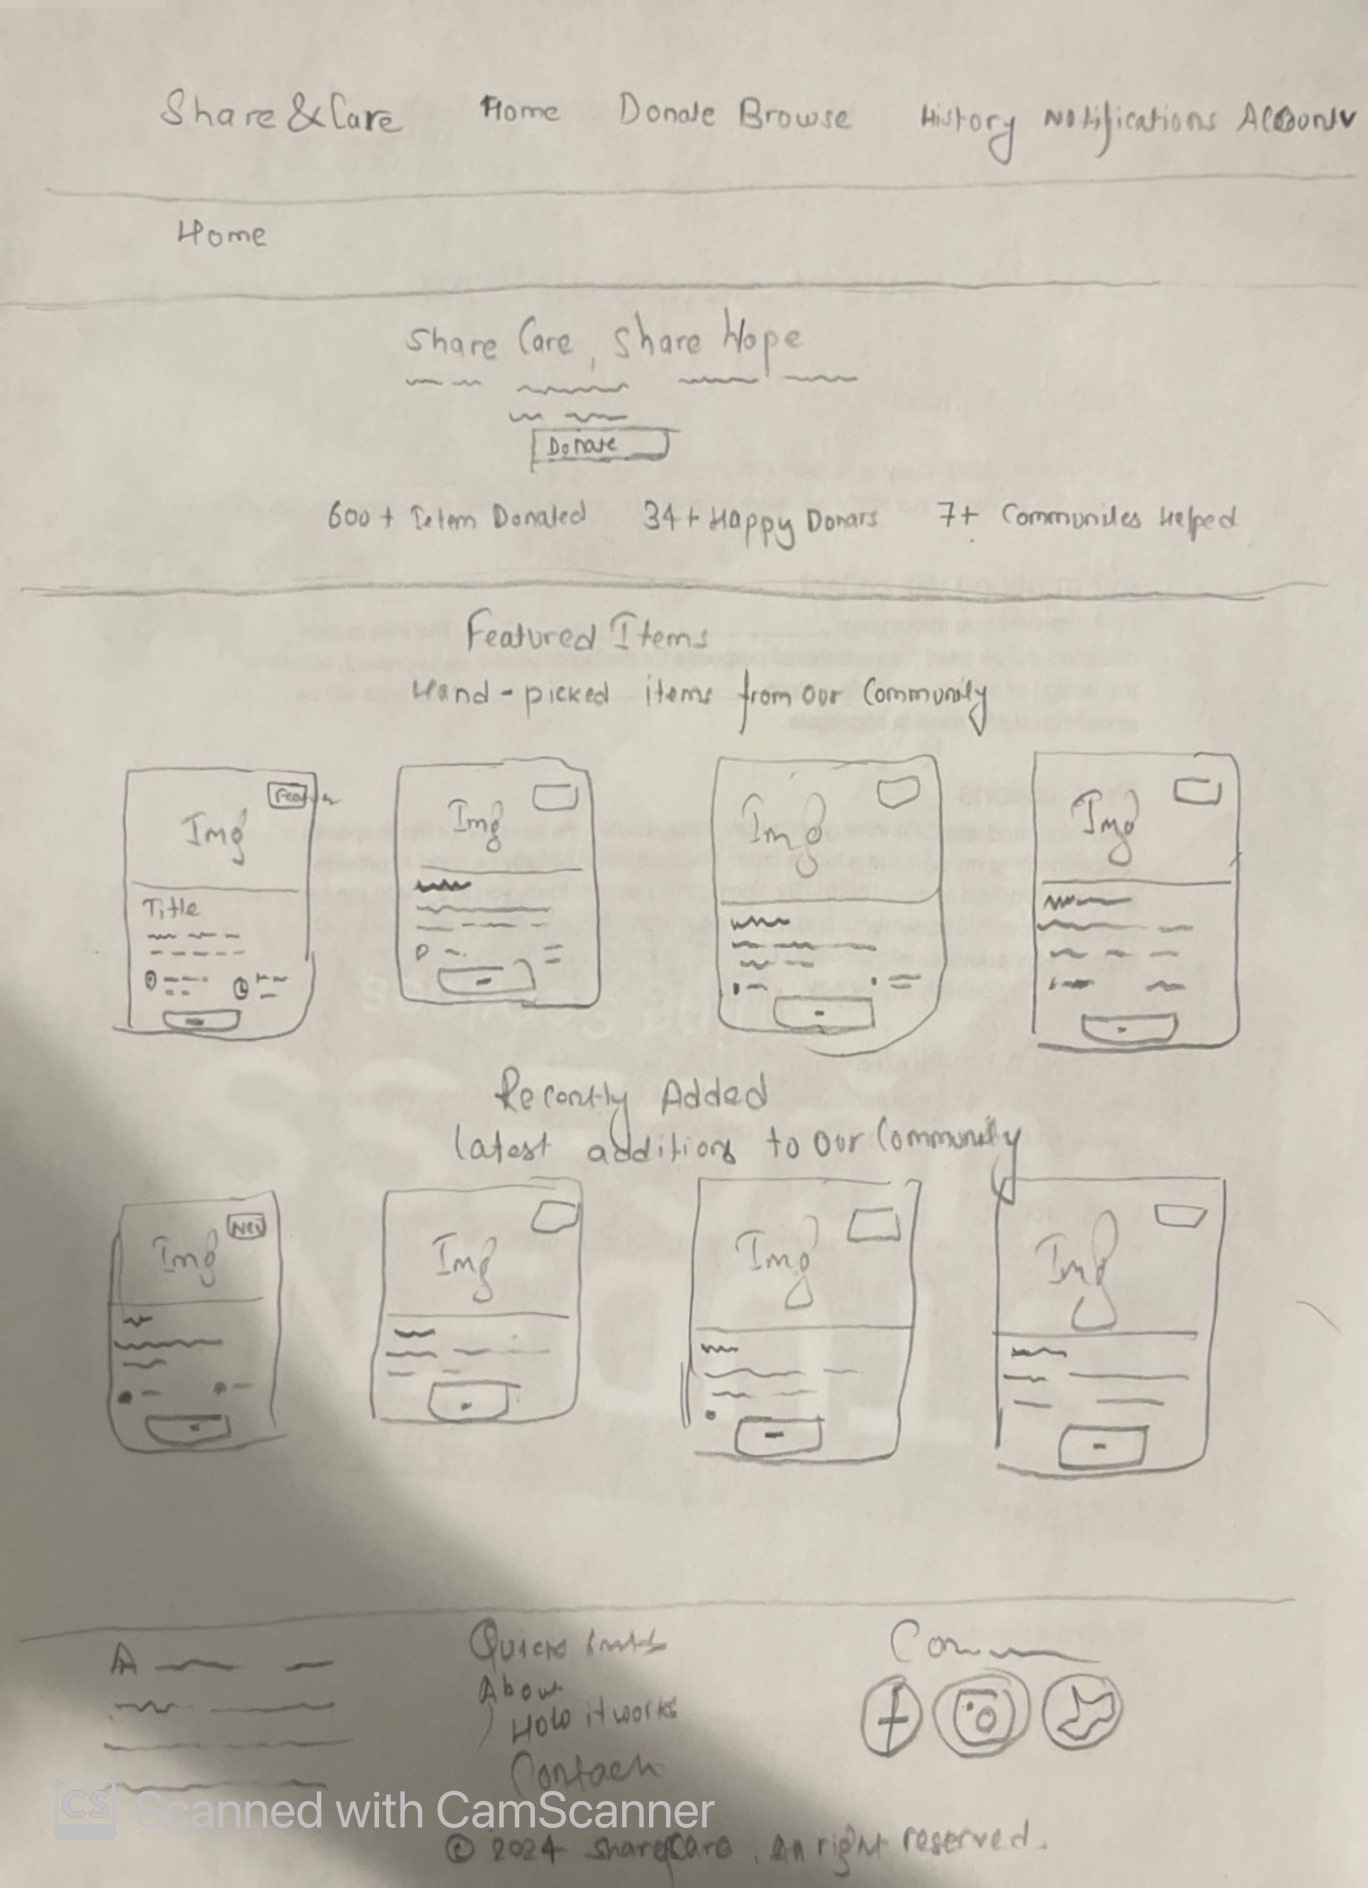 Share&Care Home Donate Browse History Notifications Account
Home
Share Care, Share Hope
Donate
600+ Ietem Donated 34+ Happy Donars 7+ Communites Helped
Featured Items
Hand-picked items from our Community
Img Img Img Img
Title
Recently Added
latest additions to our Community
New
Img Img Img Img
Quick links
About
How it works
Contact
© 2024 share&care. All right reserved.
CS Scanned with CamScanner